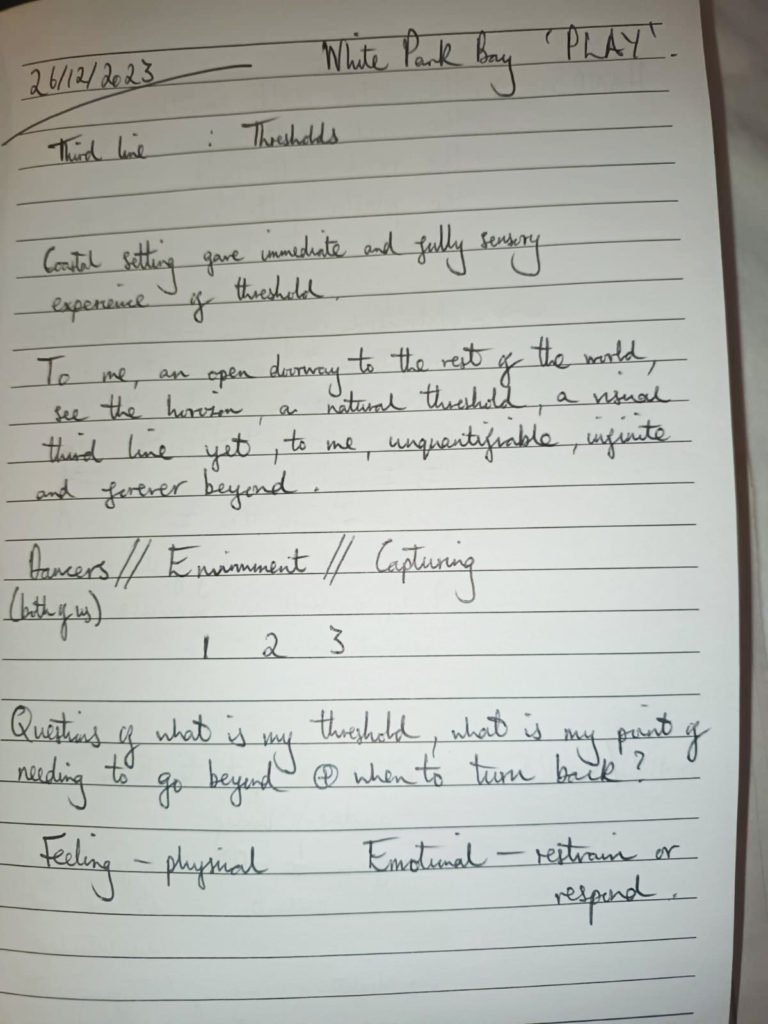 26/12/2023 White Park Bay 'PLAY'.
Third line : Thresholds
Coastal setting gave immediate and fully sensory
experience of threshold.
To me, an open doorway to the rest of the world,
see the horizon, a natural threshold, a visual
third line yet, to me, unquantifiable, infinite
and forever beyond.
Dancers // Environment // Capturing
(both of us)
1 2 3
Questions of what is my threshold, what is my point of
needing to go beyond ⊕ when to turn back?
Feeling - physical Emotional - restrain or
respond.